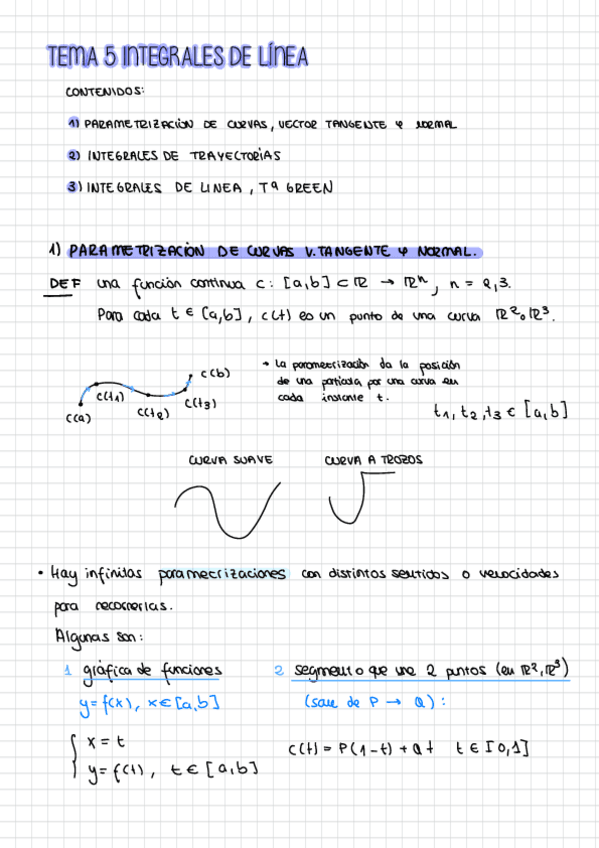 TEMA 5 INTEGRALES DE LÍNEA
CONTENIDOS:
1) PARAMETRIZACIÓN DE CURVAS, VECTOR TANGENTE Y NORMAL
2) INTEGRALES DE TRAYECTORIAS
3) INTEGRALES DE LINEA, Tª GREEN
1) PARAMETRIZACIÓN DE CURVAS V. TANGENTE Y NORMAL.
DEF una función continua c: [a,b] ⊂ ℝ → ℝⁿ, n = 2,3.
Para cada t ∈ [a,b], c(t) es un punto de una curva ℝ² o ℝ³.
c(a) c(t1) c(t2) c(t3) c(b)
→ La parametrización da la posición
de una partícula por una curva en
cada instante t.
t1, t2, t3 ∈ [a,b]
CURVA SUAVE CURVA A TROZOS
• Hay infinitas parametrizaciones con distintos sentidos o velocidades
para recorrerlas.
Algunas son:
1 gráfica de funciones
y=f(x), x∈[a,b]
{ x = t
y = f(t), t ∈ [a,b]
2 segmento que une 2 puntos (en ℝ², ℝ³)
(sale de P → Q):
c(t) = P(1-t) + Qt t ∈ [0,1]